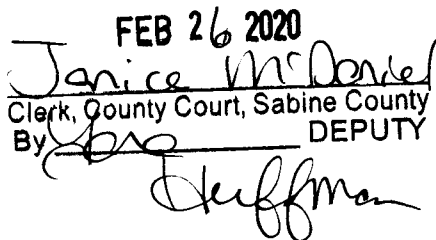 FEB 26 2020
Janice McDaniel
Clerk, County Court, Sabine County
By DEPUTY
Huffman